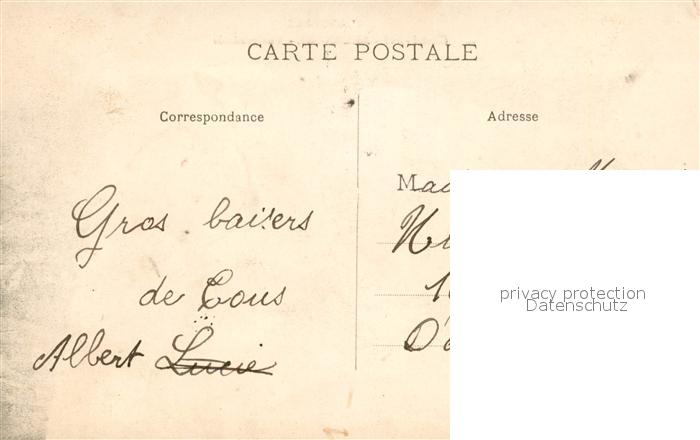 CARTE POSTALE
Correspondance
Adresse
Gros baisers
de Tous
Albert Lucie
privacy protection
Datenschutz